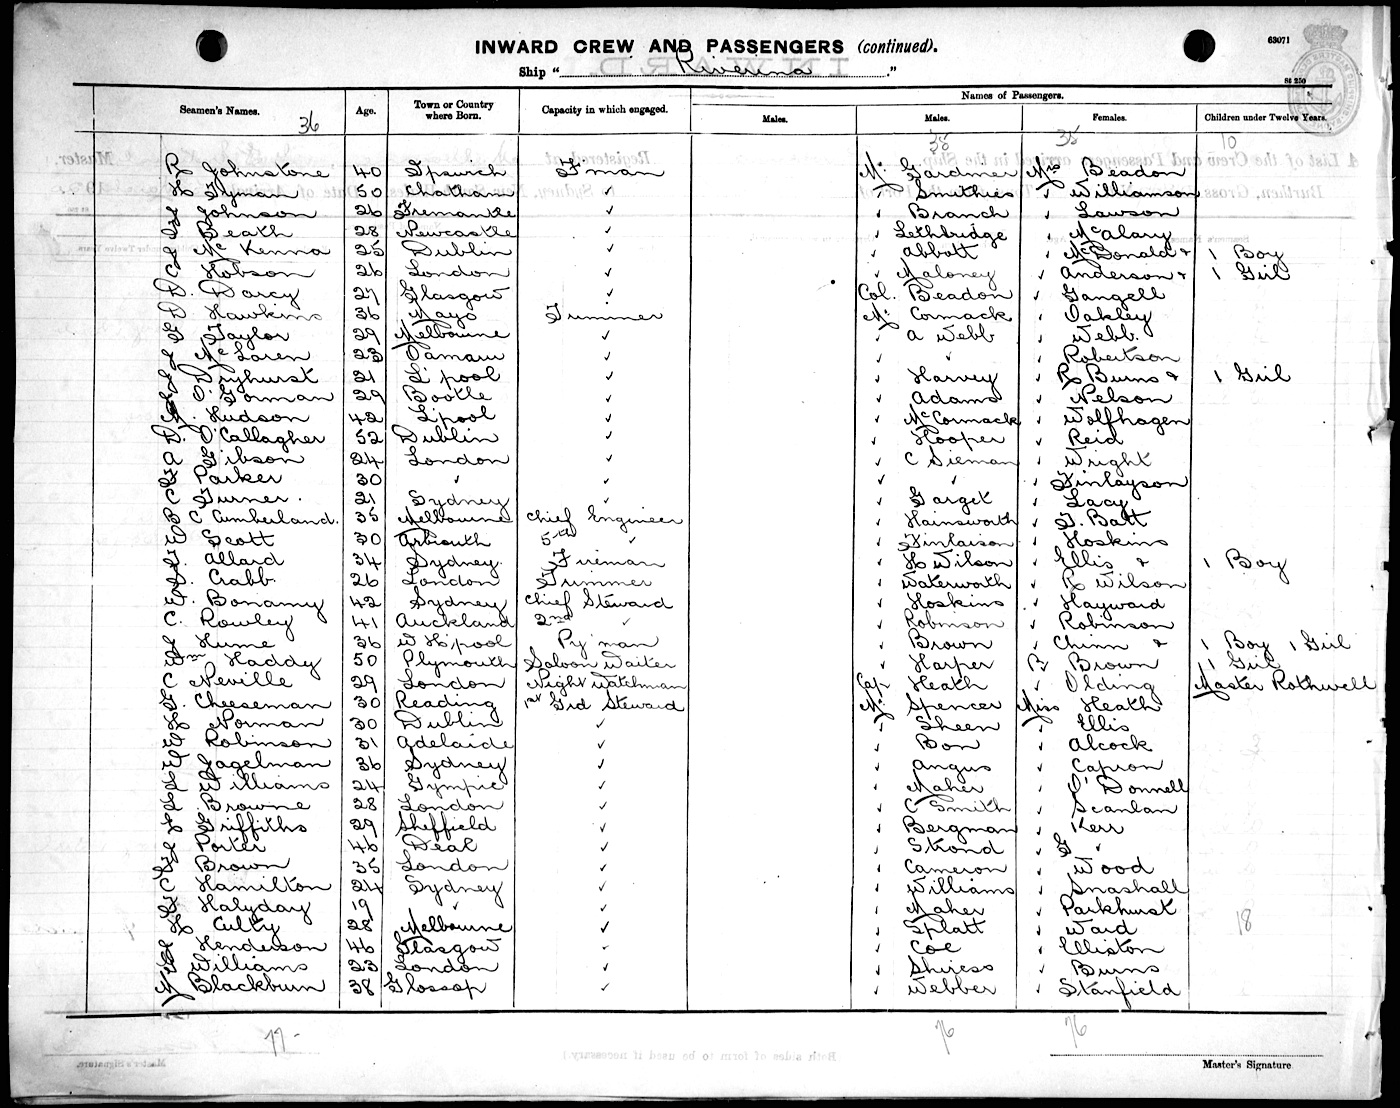 63071
INWARD CREW AND PASSENGERS (continued).
Ship " Riverina ."
Sᴛ 250
Seamen's Names. Age. Town or Country where Born. Capacity in which engaged. Names of Passengers.
Males. Males. Females. Children under Twelve Years.
36 35 35 10
Johnstone 40 Ipswich F'man Mr Gardner Mrs Beadon
Tyman 50 Chatham " " Smithies " Williamson
Johnson 26 Fremantle " " Branch " Lawson
Heath 28 Newcastle " " Lethbridge " McAlary
McKenna 25 Dublin " " Abbott " McDonald & 1 Boy
Hobson 26 London " " Maloney " Anderson & 1 Girl
D. Darcy 27 Glasgow " Col. Beadon " Gangell
Hawkins 36 Mayo Trimmer Mr Cormack " Oakley
Taylor 29 Melbourne " " A Webb " Webb.
McLaren 23 Oamaru " " " " Robertson
Dryhurst 21 L'pool " " Harvey " R Burns & 1 Girl
Gorman 29 Bootle " " Adams " Nelson
Hudson 42 L'pool " " McCormack " Wolfhagen
O'Callagher 52 Dublin " " Hooper " Reid
Gibson 24 London " " C Sieman " Wright
Parker 30 " " " " " Finlayson
Turner. 21 Sydney " " Target " Lacy
C Cumberland. 35 Melbourne Chief Engineer " Hainsworth " G. Batt
Scott 30 Arbroath 5th " " Finlaison " Hoskins
Allard 34 Sydney. Fireman " H Wilson " Ellis & 1 Boy
Crabb 26 London Trimmer " Waterworth " R Wilson
Bonamy 42 Sydney Chief Steward " Hoskins " Hayward
C. Rowley 41 Auckland 2nd " " Robinson " Robinson
Hume 36 W H'pool P'y'man " Brown " Chinn & 1 Boy 1 Girl
Wm Haddy 50 Plymouth Saloon Waiter " Harper Brown 1 Girl
C Neville 29 London Night Watchman Cap Heath " Olding Master Rothwell
Cheeseman 30 Reading 1st Grd Steward Mr Spencer Miss Heath
Norman 30 Dublin " " Sheen " Ellis
Robinson 31 Adelaide " " Bon " Alcock
Gagelman 36 Sydney " " Angus " Capron
Williams 24 Gympie " " Maher " O'Donnell
Browne 28 London " " C Smith " Scanlan
Griffiths 29 Sheffield " " Bergman " Kerr
Porter 46 Deal " " Strond " G "
Brown 35 London " " Cameron " Wood
Hamilton 24 Sydney " " Williams " Snashall
Halyday 19 " " " Maher " Parkhurst
Culty 28 Melbourne " " Splatt " Ward 18
Henderson 46 Glasgow " " Coe " Elliston
Williams 23 London " " Shiress " Burns
Blackburn 38 Glossop " " Webber " Stanfield
77 76 76
Master's Signature